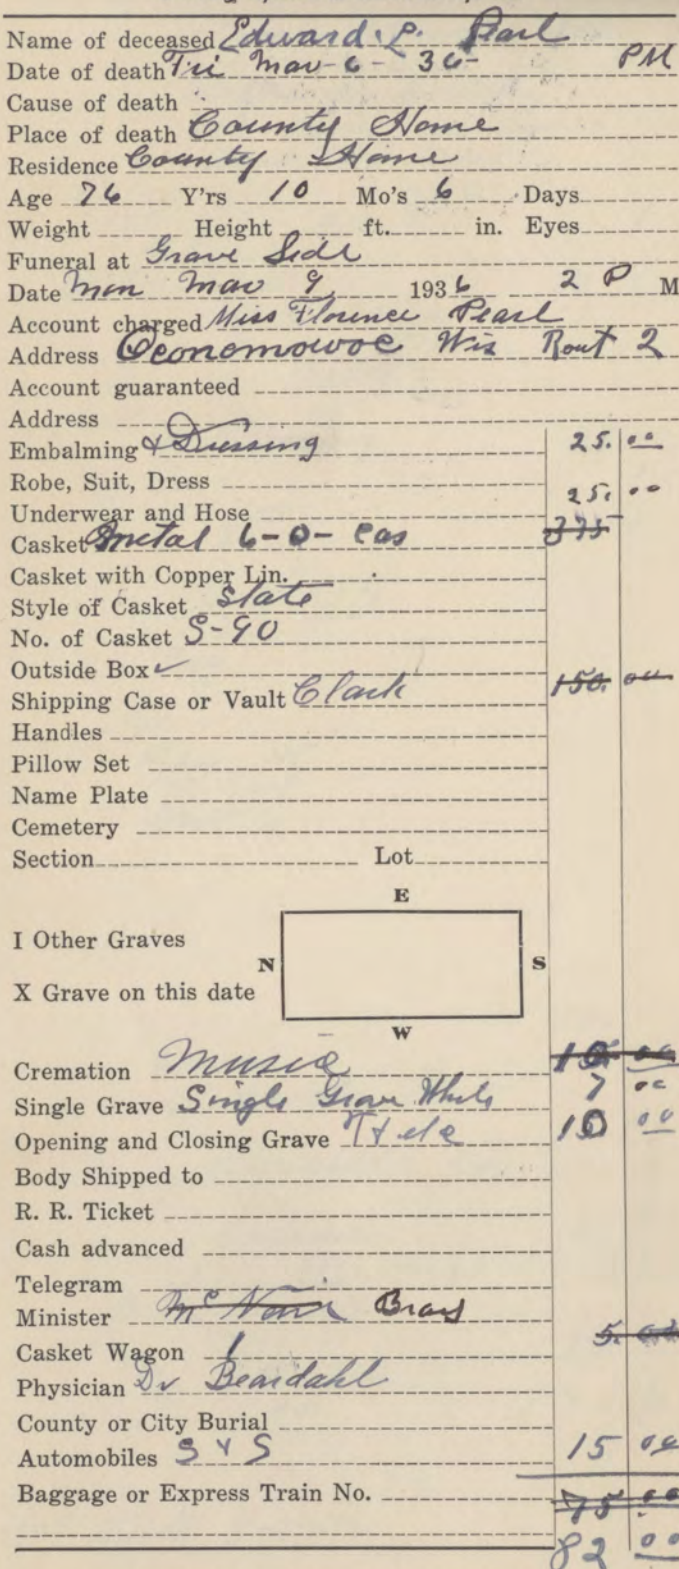 Name of deceased Edward L. Pearl
Date of death Fri Mar-6-36- PM
Cause of death
Place of death County Home
Residence County Home
Age 76 Y'rs 10 Mo's 6 Days
Weight Height ft. in. Eyes
Funeral at Grave Side
Date Mon Mar 9 1936 2 P M
Account charged Miss Florence Pearl
Address Oconomowoc Wis Rout 2
Account guaranteed
Address
Embalming & Dressing 25.00
Robe, Suit, Dress
Underwear and Hose 25.00
Casket Metal 6-0- Cas 375
Casket with Copper Lin.
Style of Casket State
No. of Casket S-90
Outside Box ✓
Shipping Case or Vault Clark 150.00
Handles
Pillow Set
Name Plate
Cemetery
Section Lot
E
I Other Graves
N S
X Grave on this date
W
Cremation Music 10.00
Single Grave Single Grave 7 00
Opening and Closing Grave 10 00
Body Shipped to
R. R. Ticket
Cash advanced
Telegram
Minister Mc Bray
5.00
Casket Wagon 1
Physician Dr Beardahl
County or City Burial
Automobiles S & S 15 00
Baggage or Express Train No. 75 00
82 00